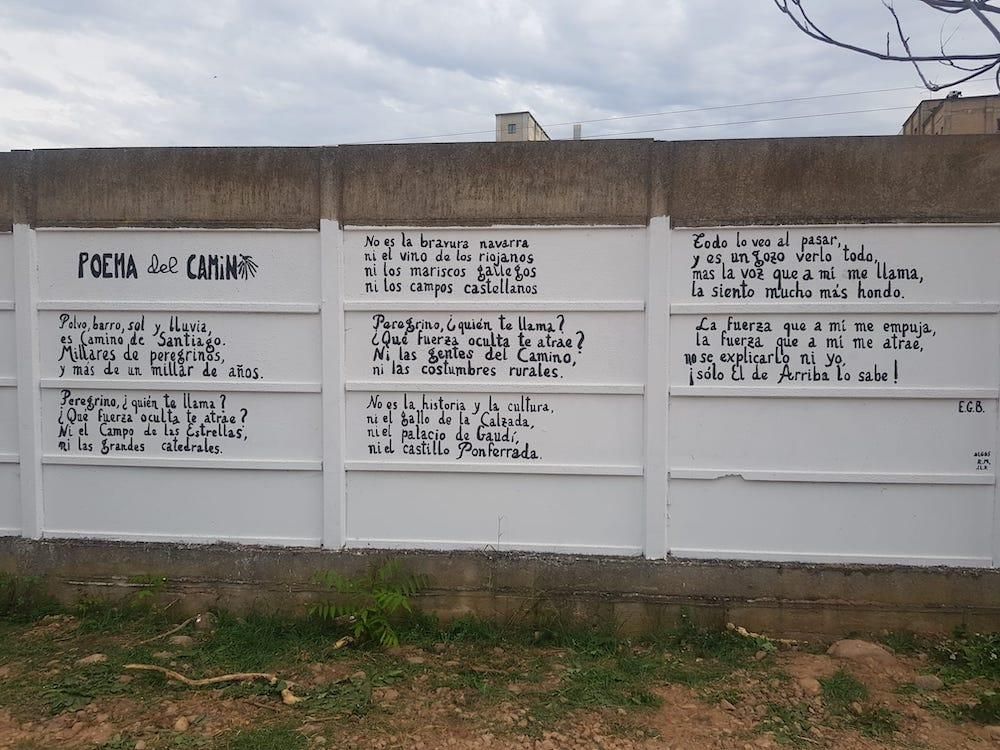 POEMA del CAMINO
Polvo, barro, sol y lluvia,
es Camino de Santiago.
Millares de peregrinos,
y más de un millar de años.
Peregrino, ¿quién te llama?
¿Qué fuerza oculta te atrae?
Ni el Campo de las Estrellas,
ni las grandes catedrales.
No es la bravura navarra
ni el vino de los riojanos
ni los mariscos gallegos
ni los campos castellanos
Peregrino, ¿quién te llama?
¿Qué fuerza oculta te atrae?
Ni las gentes del Camino,
ni las costumbres rurales.
No es la historia y la cultura,
ni el gallo de la Calzada,
ni el palacio de Gaudí,
ni el castillo Ponferrada.
Todo lo veo al pasar,
y es un gozo verlo todo,
mas la voz que a mí me llama,
la siento mucho más hondo.
La fuerza que a mí me empuja,
la fuerza que a mí me atrae,
no se explicarlo ni yo,
¡sólo El de Arriba lo sabe!
E.G.B.
R.M.